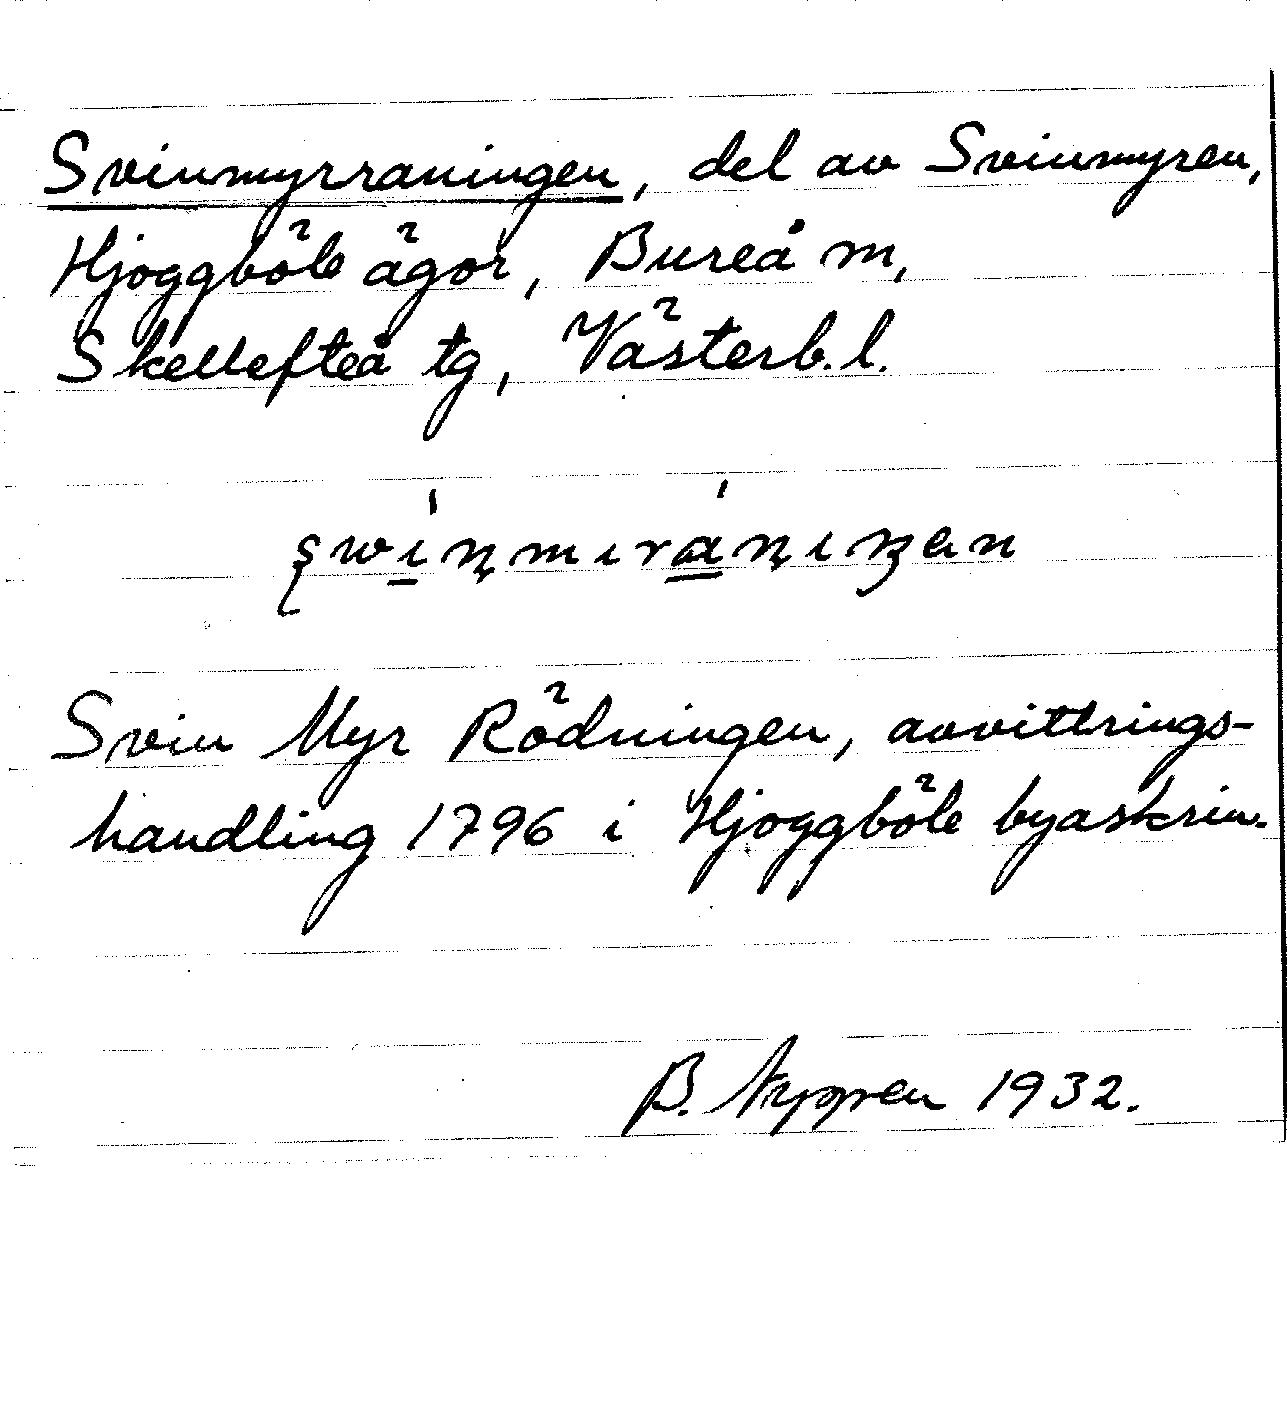 Svinmyrraningen, del av Svinmyren,
Hjoggböle ägor, Bureå m,
Skellefteå tg, Västerb. l.
Svin Myr Rödningen, avvittrings-
handling 1796 i Hjoggböle byaskrin.
B. 1932.